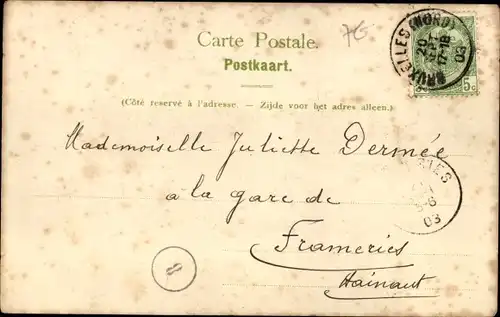 76
Carte Postale.
Postkaart.
(Côté reservé à l'adresse. — Zijde voor het adres alleen.)
BRUXELLES (NORD)
17-18
03
5c
Mademoiselle Juliette Dermée
a la gare de
Frameries
Hainaut
03
8